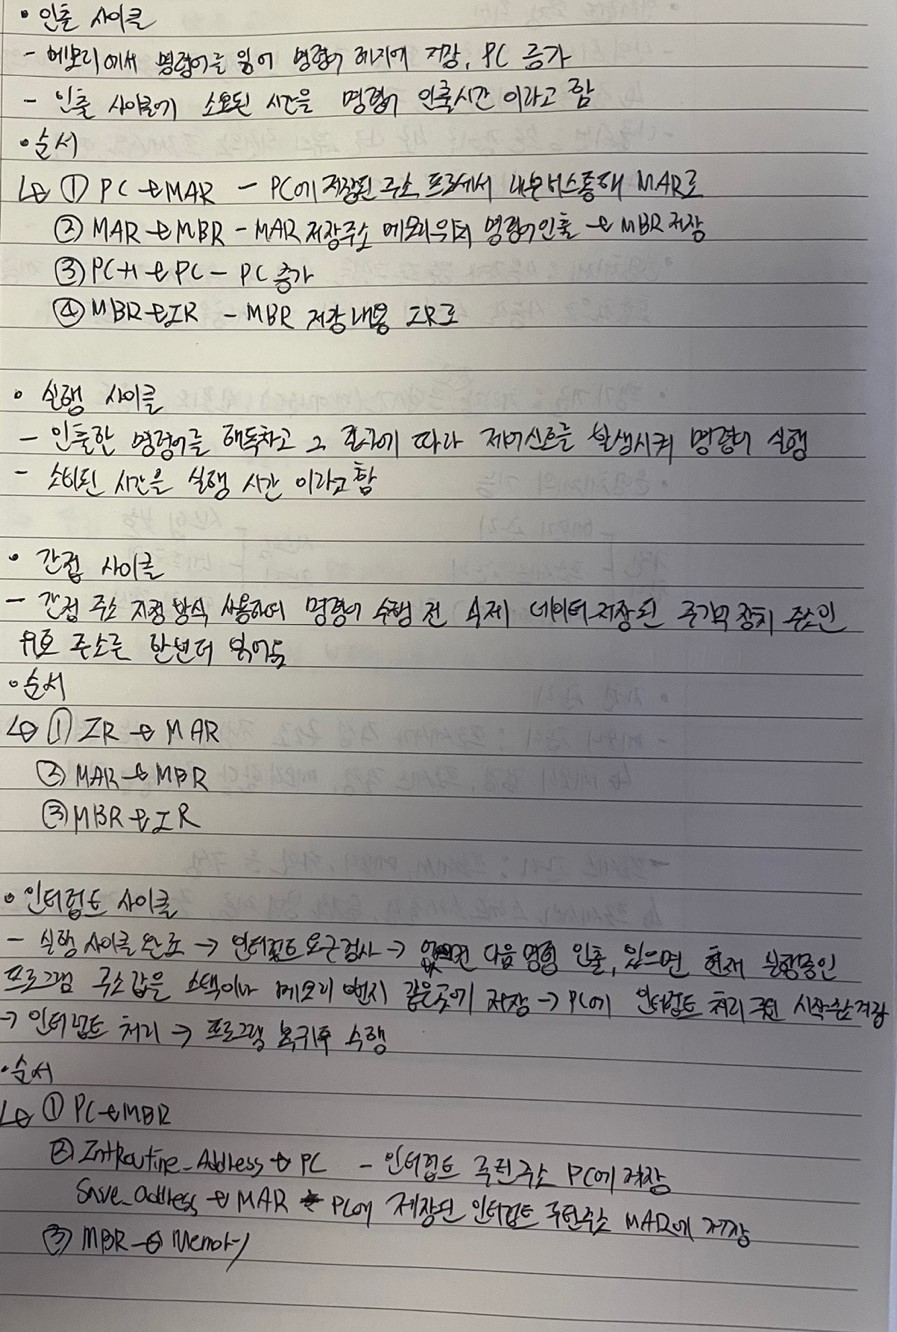 • 인출 사이클
- 메모리에서 명령어를 읽어 명령어 레지에 저장, PC 증가
- 인출 사이클에 소요된 시간을 명령어 인출시간 이라고 함
• 순서
↳ ① PC → MAR - PC에 저장된 주소 프로세서 내부버스통해 MAR로
② MAR → MBR - MAR 저장주소 메모리부터 명령어인출 → MBR 저장
③ PC+1 → PC - PC 증가
④ MBR → IR - MBR 저장내용 IR로
• 실행 사이클
- 인출한 명령어를 해독하고 그 결과에 따라 제어신호를 발생시켜 명령어 실행
- 소비된 시간을 실행 시간 이라고 함
• 간접 사이클
- 간접 주소 지정 방식 사용하여 명령어 수행 전 실제 데이터 저장된 주기억 장치 주소인
유효 주소를 한번더 읽어옴
• 순서
↳ ① IR → MAR
② MAR → MBR
③ MBR → IR
• 인터럽트 사이클
- 실행 사이클 완료 → 인터럽트 요구 검사 → 없으면 다음 명령 인출, 있으면 현재 실행중인
프로그램 주소값을 스택이나 메모리 번지 같은곳에 저장 → PC에 인터럽트 처리 루틴 저장
→ 인터럽트 처리 → 프로그램 복귀후 수행
• 순서
↳ ① PC → MBR
② IntRoutine_Address → PC - 인터럽트 루틴주소 PC에 저장
Save_address → MAR - PC에 저장된 인터럽트 루틴주소 MAR에 저장
③ MBR → Memory